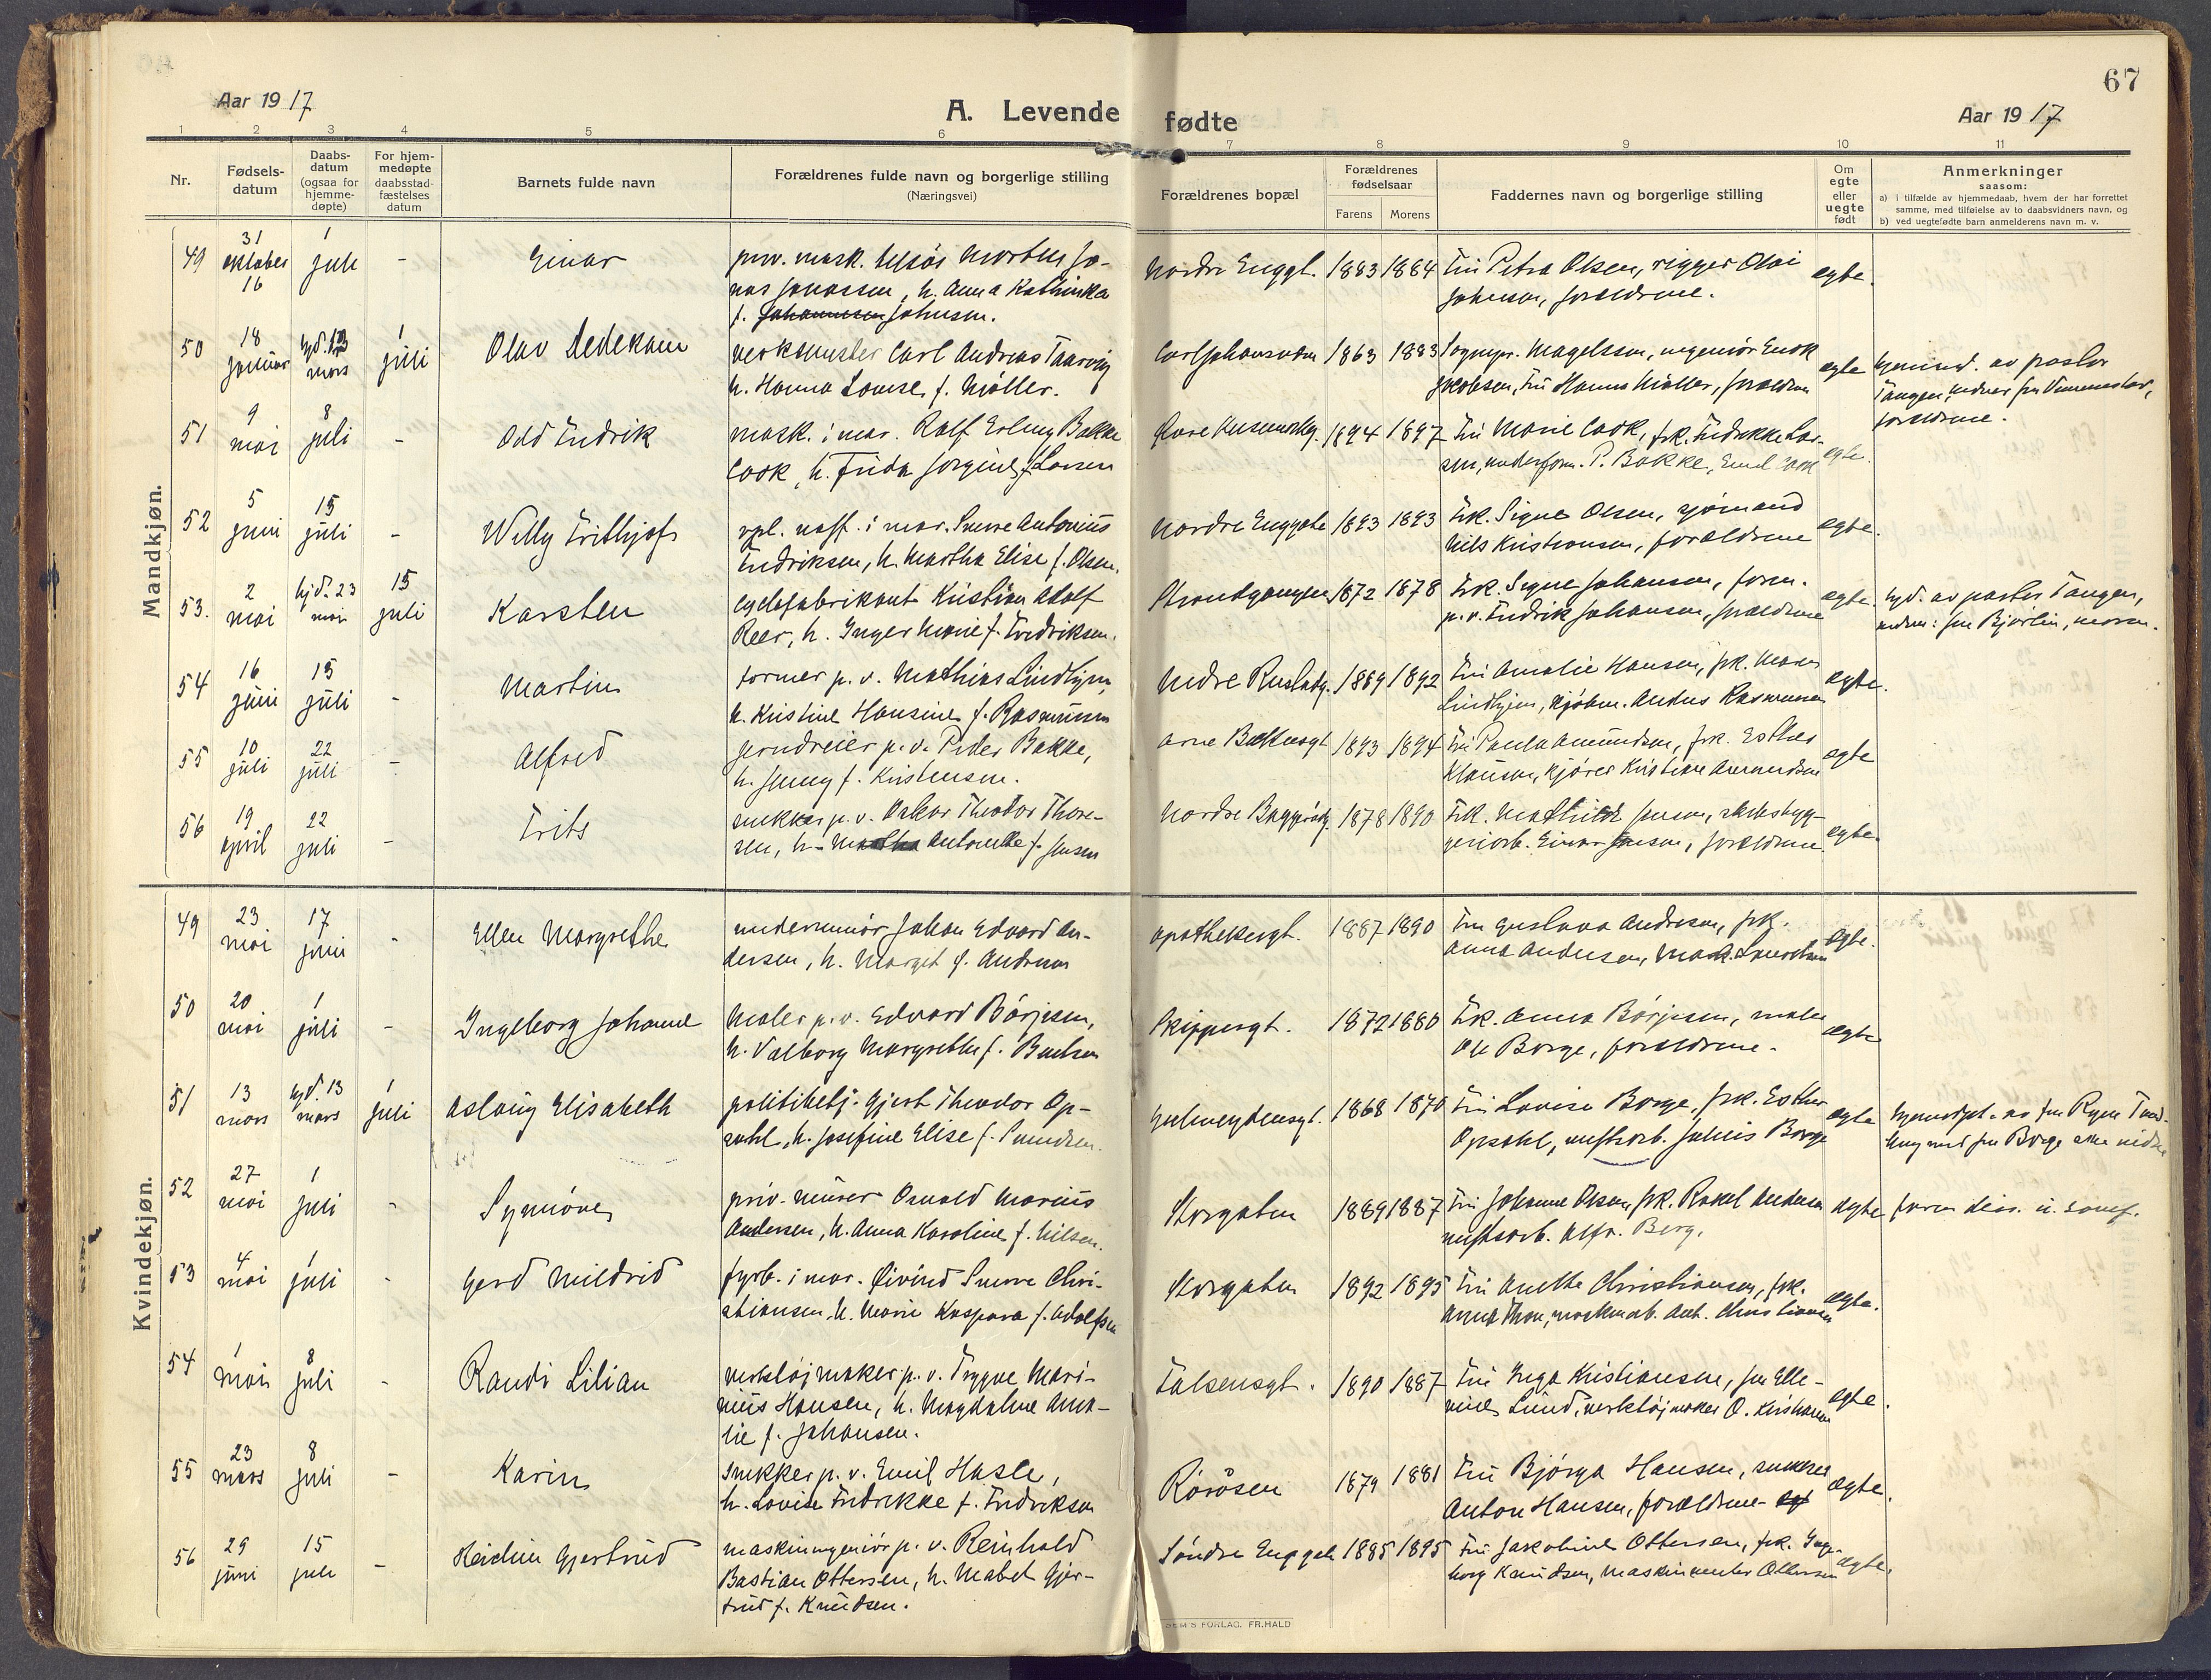 67
Aar 1917
A. Levende fødte
Aar 1917
1 2 3 4 5 6 7 8 9 10 11
Nr.
Fødsels-
datum
Daabs-
datum
(ogsaa for
hjemme-
døpte)
For hjem-
medøpte
daabsstad-
fæstelses
datum
Barnets fulde navn
Forældrenes fulde navn og borgerlige stilling
(Næringsvei)
Forældrenes bopæl
Forældrenes
fødselsaar
Farens Morens
Faddernes navn og borgerlige stilling
Om
egte
eller
uegte
født
Anmerkninger
saasom:
a) i tilfælde av hjemmedaab, hvem der har forrettet
samme, med tilføielse av to daabsvidners navn, og
b) ved uegtefødte barn anmelderens navn m. v.
Mandkjøn.
49
31
oktober
16
1
juli
-
Einar
Jonassen, h. Anna Kathinka
f. Johannesen Johnsen.
Nordre Enggt.
1883 1884
Fru Petra Olsen, rigger Olai
Johnsen, forældrene.
egte.
50
18
januar
mars
1
juli
Olav Dedekam
verksmester Carl Andreas Taarvig
h. Hanna Louise f. Møller.
1863 1883
Sognepr. Magelssen, ingeniør Enok
Jakobsen, Fru Hanna Møller, forældrene
egte
hjemmed. av pastor
Tangen, vidner fru
forældrene.
51
9
mai
8
juli
-
Odd Fredrik
mask. i mar. Ralf Erling Bakke
Cook, h. Frida Jorgine f. Larsen
1894 1897
Fru Marie Cook, frk. Fredrikke Lar-
sen, underform. P. Bakke, Emil Cook
egte.
52
5
juni
15
juli
-
Willy Frithjof
i mar. Sverre Antonius
Fredriksen, h. Martha Elise f. Olsen.
Nordre Enggate
1893 1893
Frk. Signe Olsen, sjømand
Nils Kristiansen, forældrene
egte.
53.
2
mai
hjd. 23
mai
15
juli
Karsten
cyclefabrikant Kristian Adolf
Reer, h. Inger Marie f. Fredriksen.
Strandgangen
1872 1878
Frk. Signe Johansen, form.
p. v. Fredrik Johansen, forældrene
egte.
hjd. av pastor Tangen,
vidner: fru Bjørlin, moren.
54
16
juni
15
juli
-
Martin
former p. v. Mathias Lindhjem,
h. Kristine Hansine f. Rasmussen
1889 1892
Fru Amalie Hansen, frk.
Lindhjem, kjøbm. Anders Rasmussen
egte.
55
10
juli
22
juli
-
Alfred
jerndreier p. v. Peder Bakke,
h. Jenny f. Kristensen.
1893 1894
Fru Paula Amundsen, frk. Esther
Klausen, kjører Kristian Amundsen
egte
56
19
april
22
juli
-
Frits
snekker p. v. Oskar Theodor Thore-
sen, h. Antonette f. Jensen
1878 1890
Frk. Mathilde Jensen, skibsbyg-
geriarb. Einar Jensen, forældrene.
egte.
Kvindekjøn.
49
23
mai
17
juni
-
Ellen Margrethe
Johan Edvard An-
dersen, h. Margit f. Andersen
Apothekergt.
1887 1890
Fru Gustava Andresen, frk.
Anna Andersen, mask.
egte.
50
20
mai
1
juli
-
Ingeborg Johanne
Maler p. v. Edvard Børjesen,
h. Valborg Margrethe f.
Skippergt.
1872 1880
Frk. Anna Børjesen, maler
Ole Borge, forældrene.
egte
51
13
mars
hjd. 13
mars
1
juli
Aslaug Elisabeth
politibetj. Gjert Theodor Op-
sahl, h. Josefine Elise f.
1868 1870
Fru Lovise Borge, frk. Esther
Opsahl, verftsarb. Julius Borge
egte
52
27
mai
1
juli
-
Synnøve
priv. murer Osvald Marius
Andersen, h. Anna Karoline f. Nilsen.
Storgaten
1889 1887
Fru Johanne Olsen, frk. Rakel Andersen
verftsarb. Alfr. Berg.
egte
53
4
mai
1
juli
-
Gerd Mildrid
fyrb. i mar. Øivind Sverre Chri-
stiansen, h. Marie Kaspara f. Adolfsen
Storgaten
1892 1895
Fru Anette Christiansen, frk.
Anna Thon, Ant. Christiansen
egte.
54
1
mai
8
juli
-
Randi Lilian
verktøjmaker p. v. Trygve Mari-
nius Hansen, h. Magdalene Ama-
lie f. Johansen.
Falsensgt.
1890 1887
Fru Inga Kristiansen, fru Elle-
vine Lund, verktøjmaker O. Kristiansen
egte.
55
23
mars
8
juli
-
Karin
Snekker p. v. Emil Hasle,
h. Lovise Fredrikke f. Fredriksen
Røråsen
1879 1881
Fru Bjørga Hansen, snekker
Anton Hansen, forældrene
egte.
56
29
juni
15
juli
-
Reidun Gjertrud
maskiningeniør p. v. Reinhold
Bastian Ottersen, h. Mabel Gjer-
trud f. Knudsen.
Søndre Enggate
1885 1895
Fru Jakobine Ottersen, frk. Inge-
borg Knudsen, maskinmester Ottersen
egte.
SEM'S FORLAG. FR.HALD